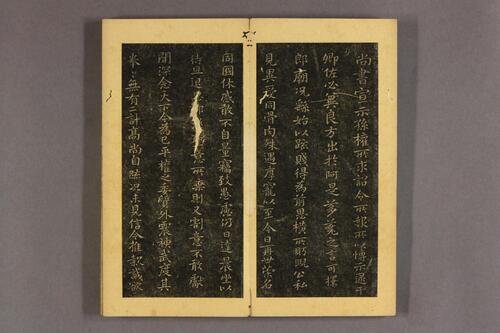 尚書宣示孫權所求詔令所報所以博示逮于
卿佐必冀良方出於阿是芻蕘之言可擇
郎廟況繇始以疏賤得為前恩橫所盼睨公私
見異愛同骨肉殊遇厚寵以至今日再世榮名
同國休慼敢不自量竊致愚慮仍日達晨坐以
待旦退思鄙淺聖意所棄則又割意不敢獻
聞深念天下今為已平權之委質外震神武度其
拳拳無有二計高尚自疏況未見信今推款誠欲